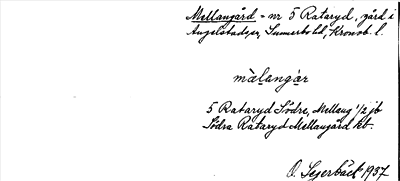 Mellangård = nr 5 Rataryd, gård i
Angelstad sn, Sunnerbo hd, Kronob. l.
mälangar
5 Rataryd Södre, Mellang 1/2 jb
Södra Rataryd Mellangård kb.
O. Segerbäck 1937